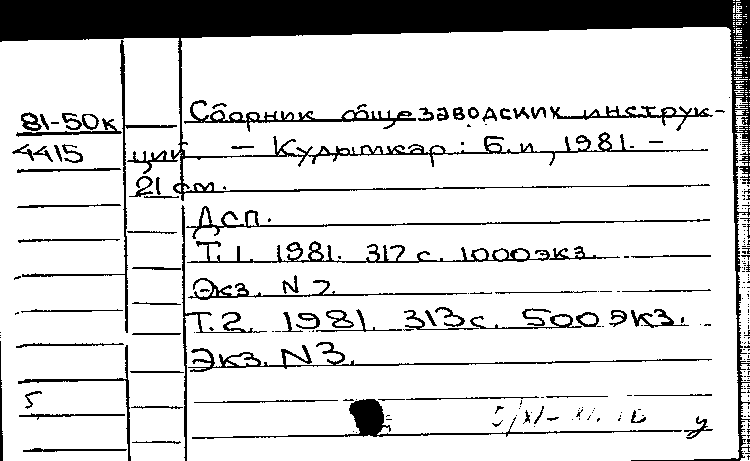 81-50к Сборник общезаводских инструк-
4415 ций. – Кудымкар: Б.и, 1981. –
21 см.
Дсп.
Т.1. 1981. 317 с. 1000 экз.
Экз. N 7.
Т.2. 1981. 313 с. 500 экз.
Экз. N3.
5 у